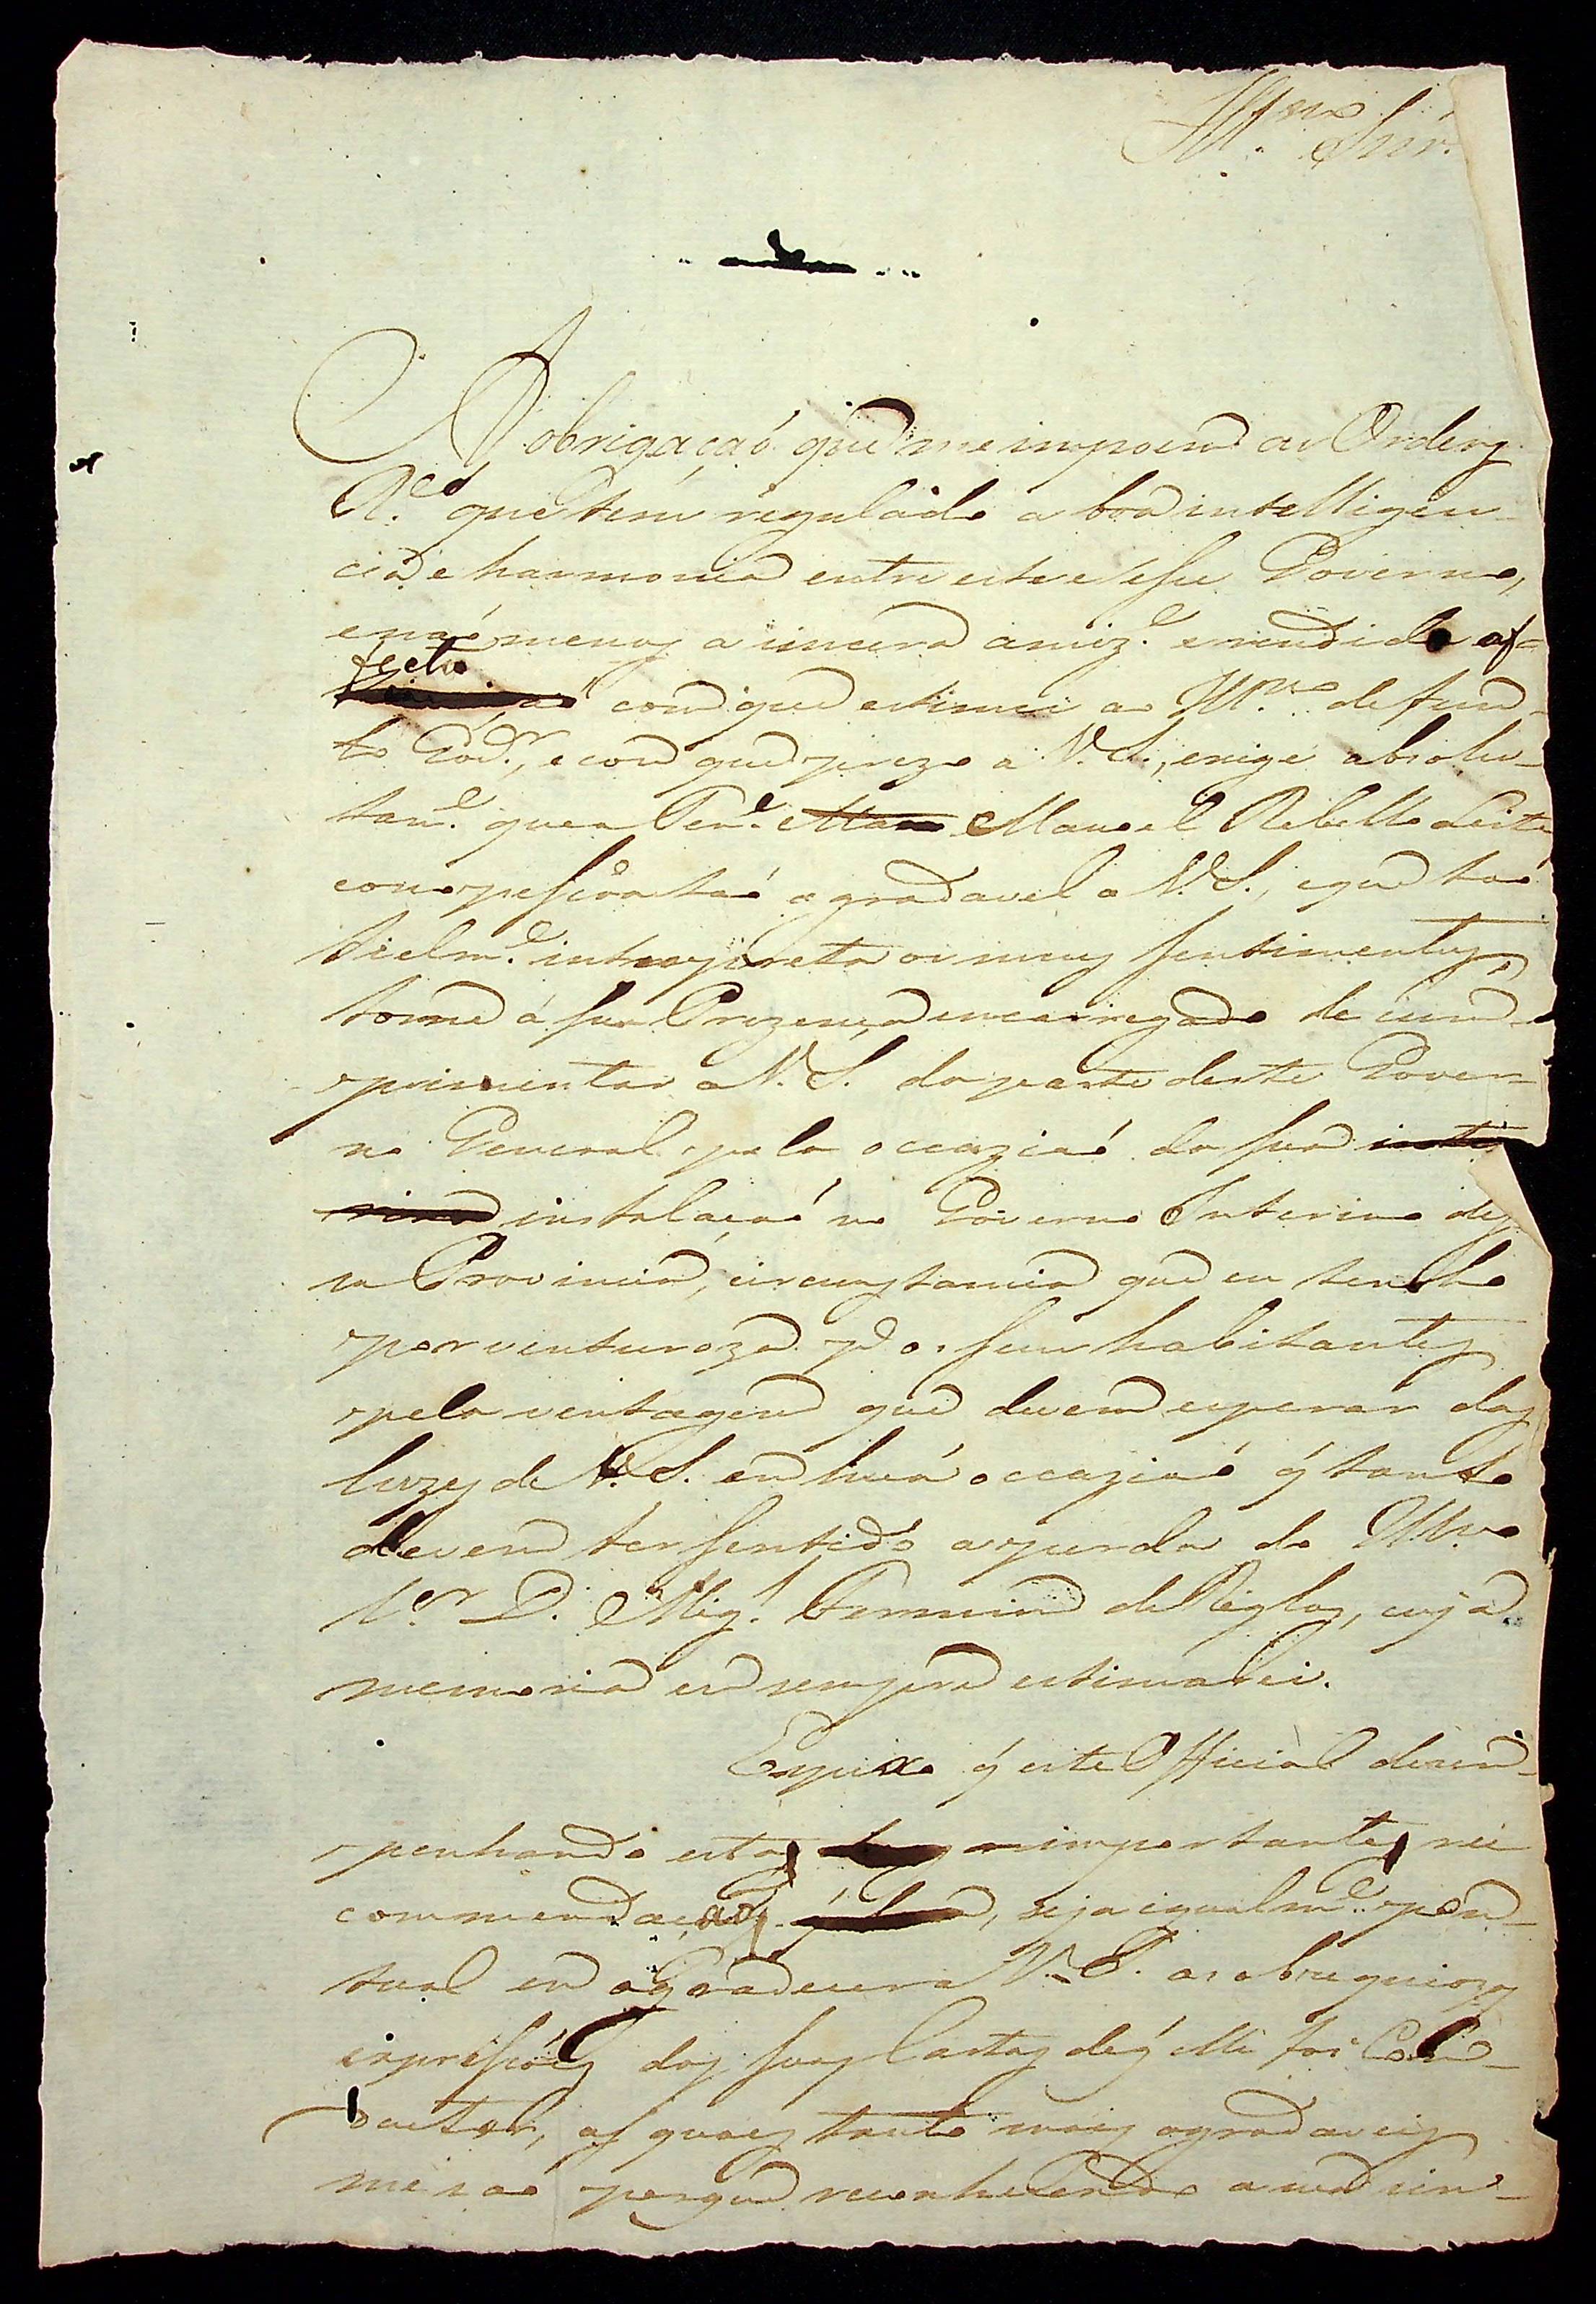 Ill.mo Snr.
A obrigaçaõ que me impoem as Ordens
R.es que tem regulado a boa intelligen-
cia e harmonia entre este e esse Governo,
e naõ menos a sincera amiz.e e rendido af-
fecto
com que estimei ao Ill.mo defun-
to Gov.or, e com que prezo a V. S., exige absolu-
tam.e que o Ten.e Mano Manoel Rebello Leite
como pessoa taõ agradavel a V. S., e que taõ
fielm.e interpreta os meus sentimentos,
torne á sua Prezença encarregado de cum-
primentar a V. S. da parte deste Gover-
no General pela occaziaõ da sua inte
rina instalaçaõ no Governo Interino des-
sa Provincia, circunstancia que eu tenho
por venturoza p.a os seus habitantes
pela ventagem que devem esperar das
luzes de V. S. em huã occaziaõ q̃ tanto
devem ter sentido a perda do Ill.mo
S.or D. Mig.l Fermin de Riglos, cuja
memoria eu sempre estimarei.
Espero q̃ este Official dezem-
penhando estas importantes re-
commendaçoẽs, seja igualm.e pon-
tual em agradecer a V. S. as obzequiozas
expressoẽs das suas Cartas de q̃ elle foi Con-
ductor, as quaes tanto mais agradaveis
me saõ porque reconhecendo a sua sin-